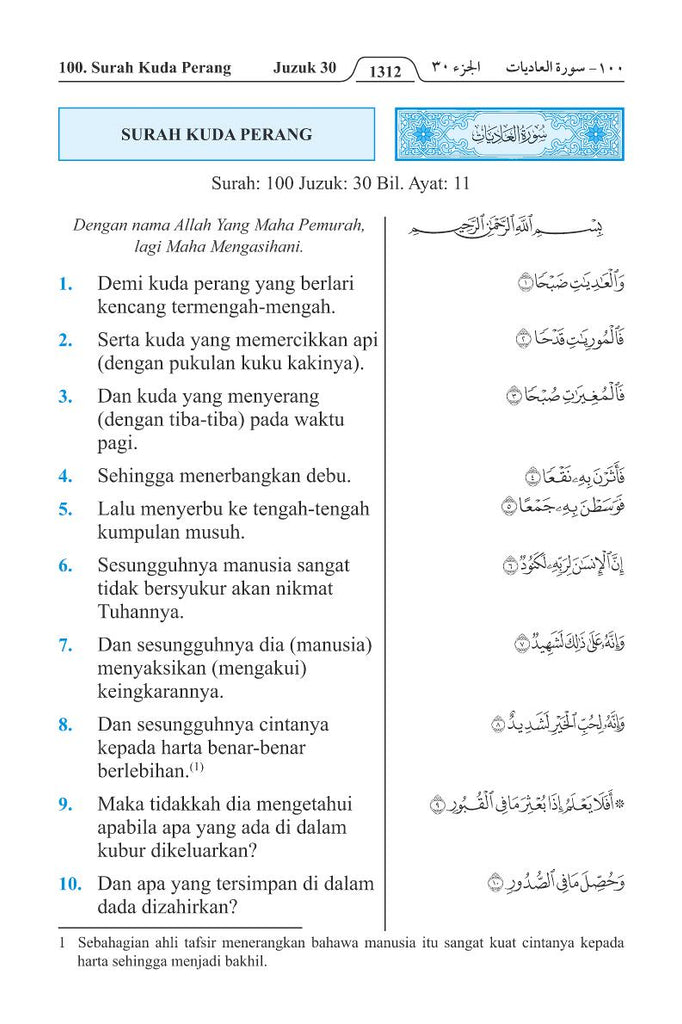 100. Surah Kuda Perang Juzuk 30 1312 الجزء ٣٠ ١٠٠– سورة العاديات
SURAH KUDA PERANG
سُورَةُ العَادِيَات
Surah: 100 Juzuk: 30 Bil. Ayat: 11
Dengan nama Allah Yang Maha Pemurah,
lagi Maha Mengasihani.
بِسْمِ ٱللَّهِ ٱلرَّحْمَٰنِ ٱلرَّحِيمِ
1. Demi kuda perang yang berlari
kencang termengah-mengah.
وَٱلْعَٰدِيَٰتِ ضَبْحًا ١
2. Serta kuda yang memercikkan api
(dengan pukulan kuku kakinya).
فَٱلْمُورِيَٰتِ قَدْحًا ٢
3. Dan kuda yang menyerang
(dengan tiba-tiba) pada waktu
pagi.
فَٱلْمُغِيرَٰتِ صُبْحًا ٣
4. Sehingga menerbangkan debu.
فَأَثَرْنَ بِهِۦ نَقْعًا ٤
5. Lalu menyerbu ke tengah-tengah
kumpulan musuh.
فَوَسَطْنَ بِهِۦ جَمْعًا ٥
6. Sesungguhnya manusia sangat
tidak bersyukur akan nikmat
Tuhannya.
إِنَّ ٱلْإِنسَٰنَ لِرَبِّهِۦ لَكَنُودٌ ٦
7. Dan sesungguhnya dia (manusia)
menyaksikan (mengakui)
keingkarannya.
وَإِنَّهُۥ عَلَىٰ ذَٰلِكَ لَشَهِيدٌ ٧
8. Dan sesungguhnya cintanya
kepada harta benar-benar
berlebihan.(1)
وَإِنَّهُۥ لِحُبِّ ٱلْخَيْرِ لَشَدِيدٌ ٨
9. Maka tidakkah dia mengetahui
apabila apa yang ada di dalam
kubur dikeluarkan?
۞ أَفَلَا يَعْلَمُ إِذَا بُعْثِرَ مَا فِى ٱلْقُبُورِ ٩
10. Dan apa yang tersimpan di dalam
dada dizahirkan?
وَحُصِّلَ مَا فِى ٱلصُّدُورِ ١٠
1 Sebahagian ahli tafsir menerangkan bahawa manusia itu sangat kuat cintanya kepada
harta sehingga menjadi bakhil.